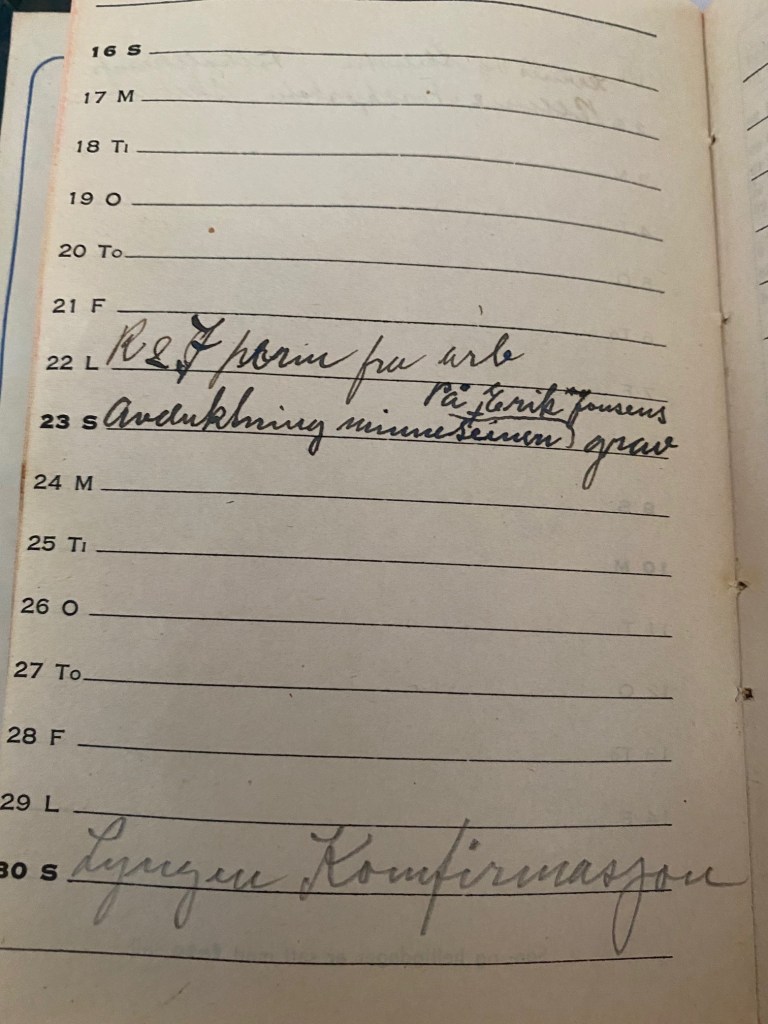 16 S
17 M
18 Ti
19 O
20 To
21 F
22 L R & F perm fra arb
På Erik Jonsens
23 S Avdukhning minnesteinen grav
24 M
25 Ti
26 O
27 To
28 F
29 L
30 S Lyngen Komfirmasjon